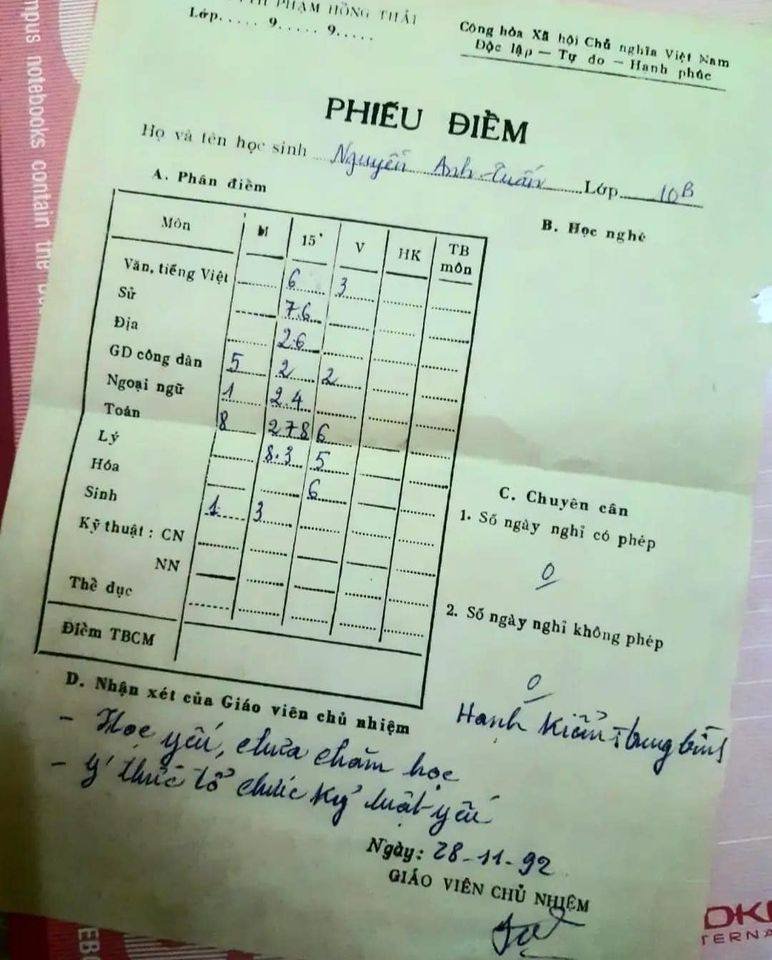 PHẠM HỒNG THÁI
Lớp..... 9..... 9.....
Cộng hòa Xã hội Chủ nghĩa Việt Nam
Độc lập — Tự do — Hạnh phúc
PHIẾU ĐIỂM
Họ và tên học sinh Nguyễn Anh Tuấn Lớp 10B
A. Phân điểm
B. Học nghề
Môn M 15' V HK TB môn
Văn, tiếng Việt 6 3
Sử 7.6
Địa 2.6
GD công dân 5 2 2
Ngoại ngữ 1 2.4
Toán 8 2786
Lý 8.3 5
Hóa 6
Sinh 1 3
Kỹ thuật : CN
NN
Thể dục
Điểm TBCM
C. Chuyên cần
1. Số ngày nghỉ có phép
0
2. Số ngày nghỉ không phép
0
Hạnh kiểm: trung bình
D. Nhận xét của Giáo viên chủ nhiệm
- Học yếu, chưa chăm học
- Ý thức tổ chức kỷ luật yếu
Ngày: 28-11-92
GIÁO VIÊN CHỦ NHIỆM
mpus notebooks contain the